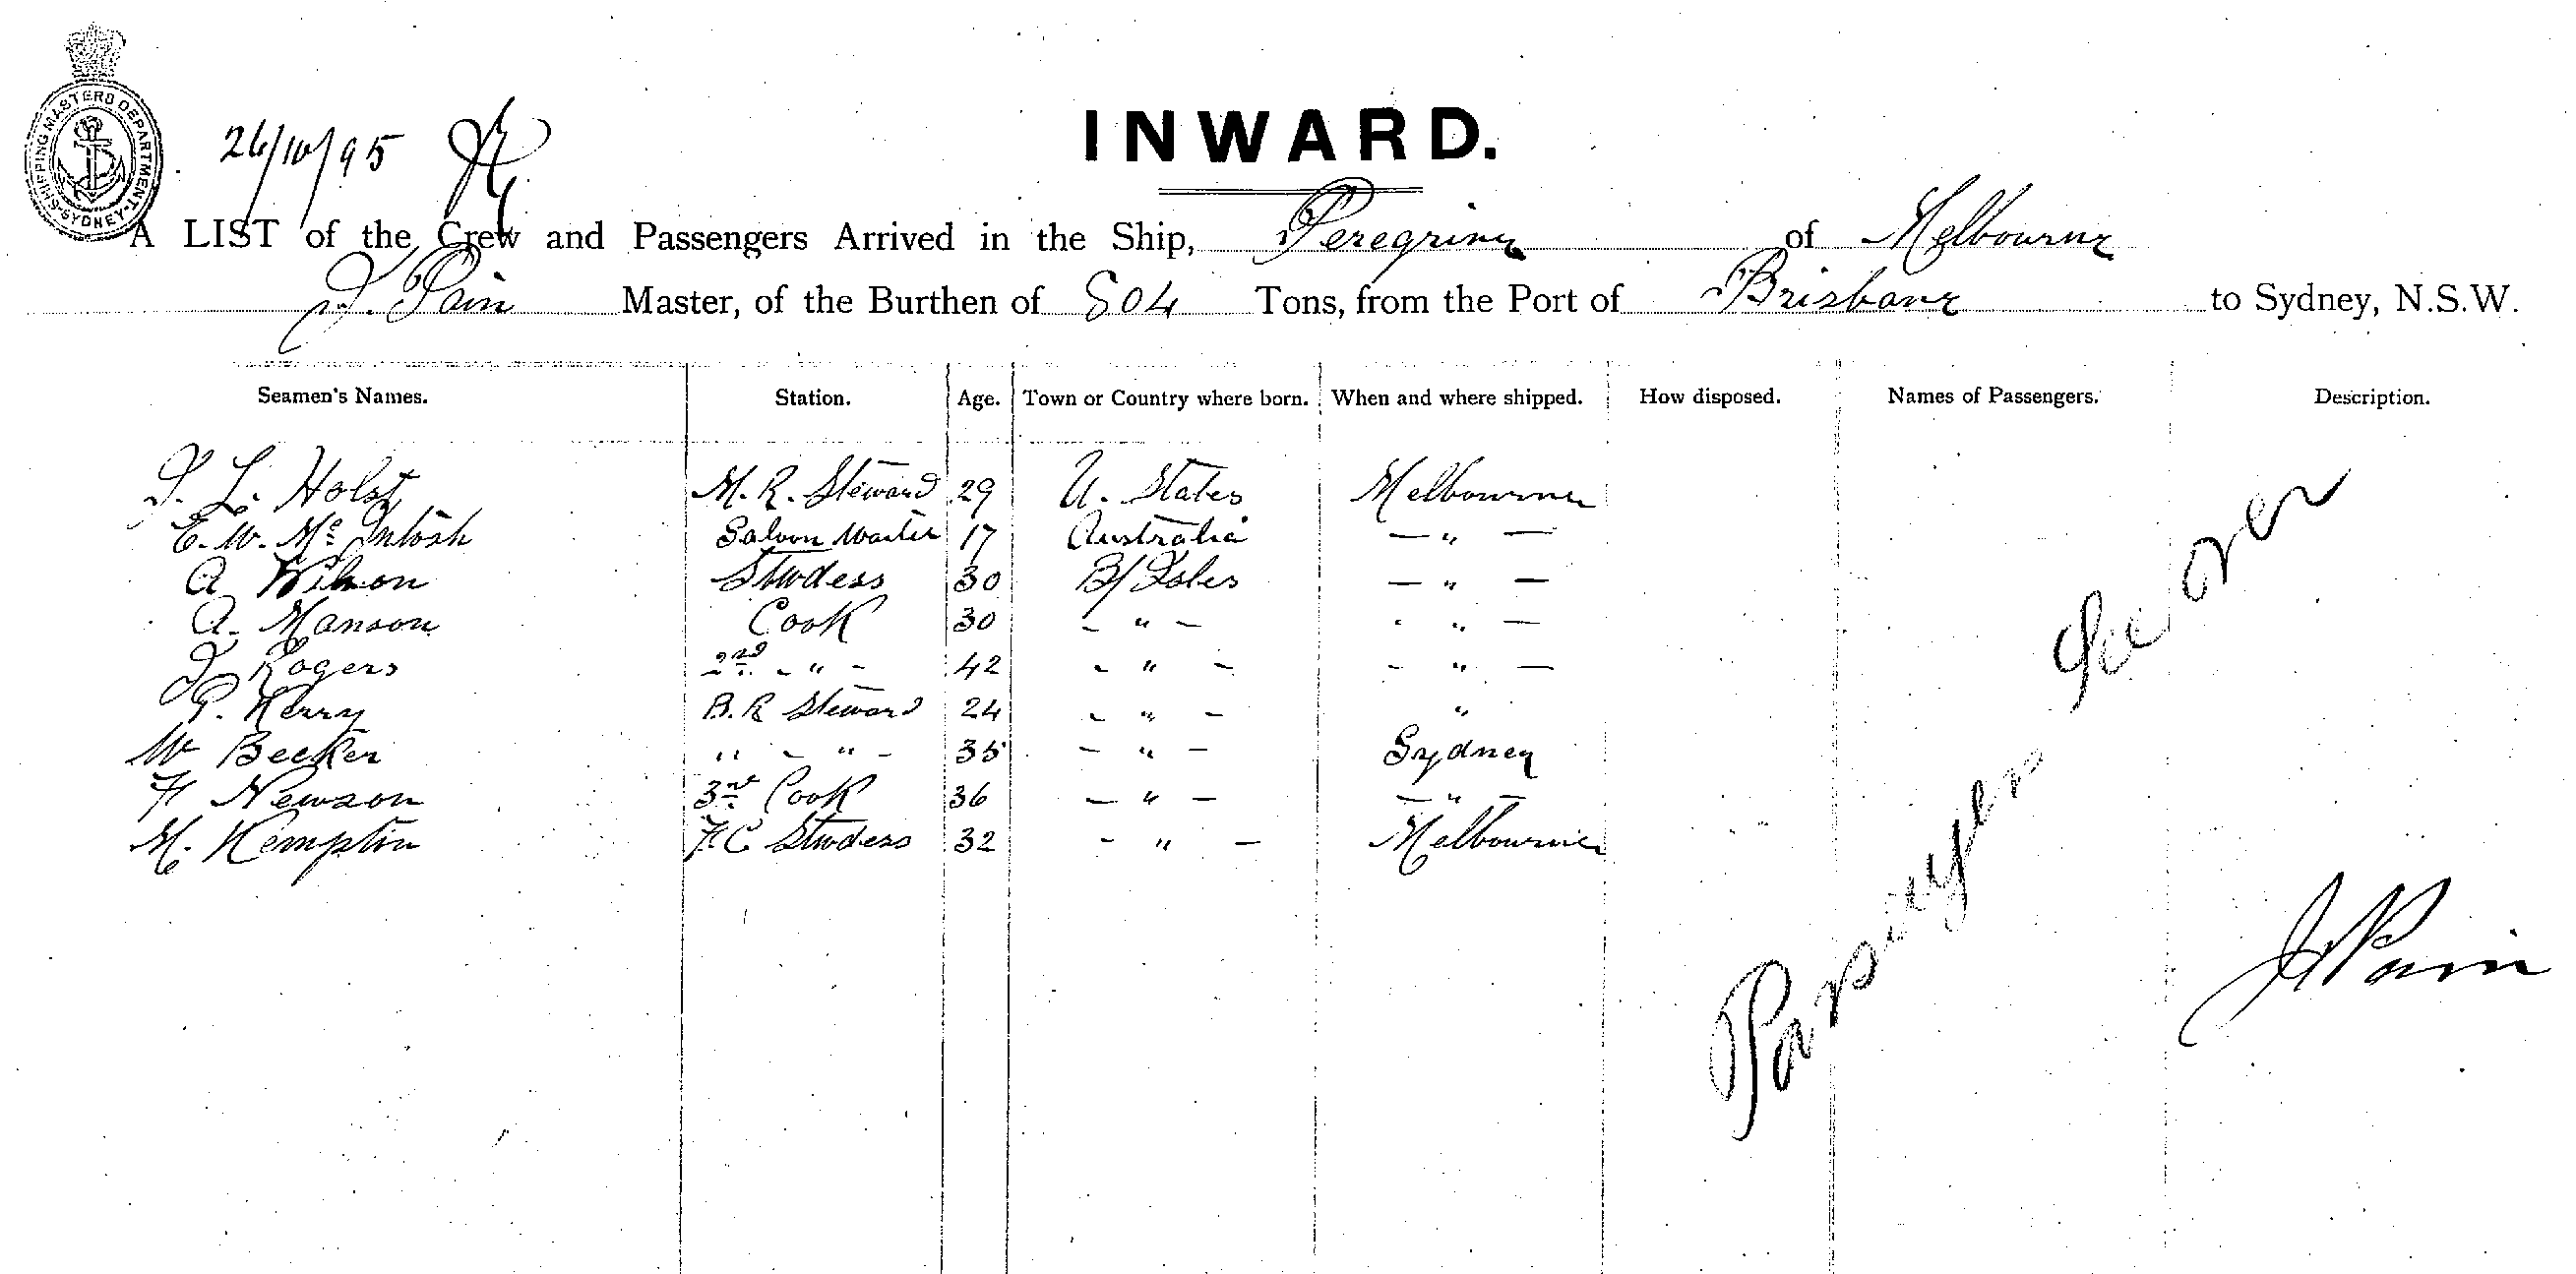 SHIPPING MASTERS DEPARTMENT · SYDNEY ·
26/10/95
INWARD.
A LIST of the Crew and Passengers Arrived in the Ship, Peregrine of Melbourne
J. Pain Master, of the Burthen of 804 Tons, from the Port of Brisbane to Sydney, N.S.W.
Seamen's Names. Station. Age. Town or Country where born. When and where shipped. How disposed. Names of Passengers. Description.
L. Holst M. R. Steward 29 U. States Melbourne
E. W. Mc Intosh Saloon Waiter 17 Australia — " —
A Wilson Stwdess 30 B/Isles — " —
A. Manson Cook 30 - " - " —
J Rogers 2nd - " - 42 - " - - " —
P. Kerry B. R Steward 24 - " - "
W Becker " - " - 35 - " - Sydney
H Newson 3rd Cook 36 — " — — " —
M. Kempton F.C Stwdess 32 - " — Melbourne
Passengers See over
J Pain